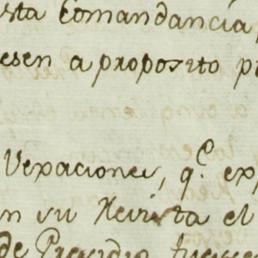 sta Comandancia
esen a proposito p
Vexaciones, q.e ex
n su Revista el
de Presidio